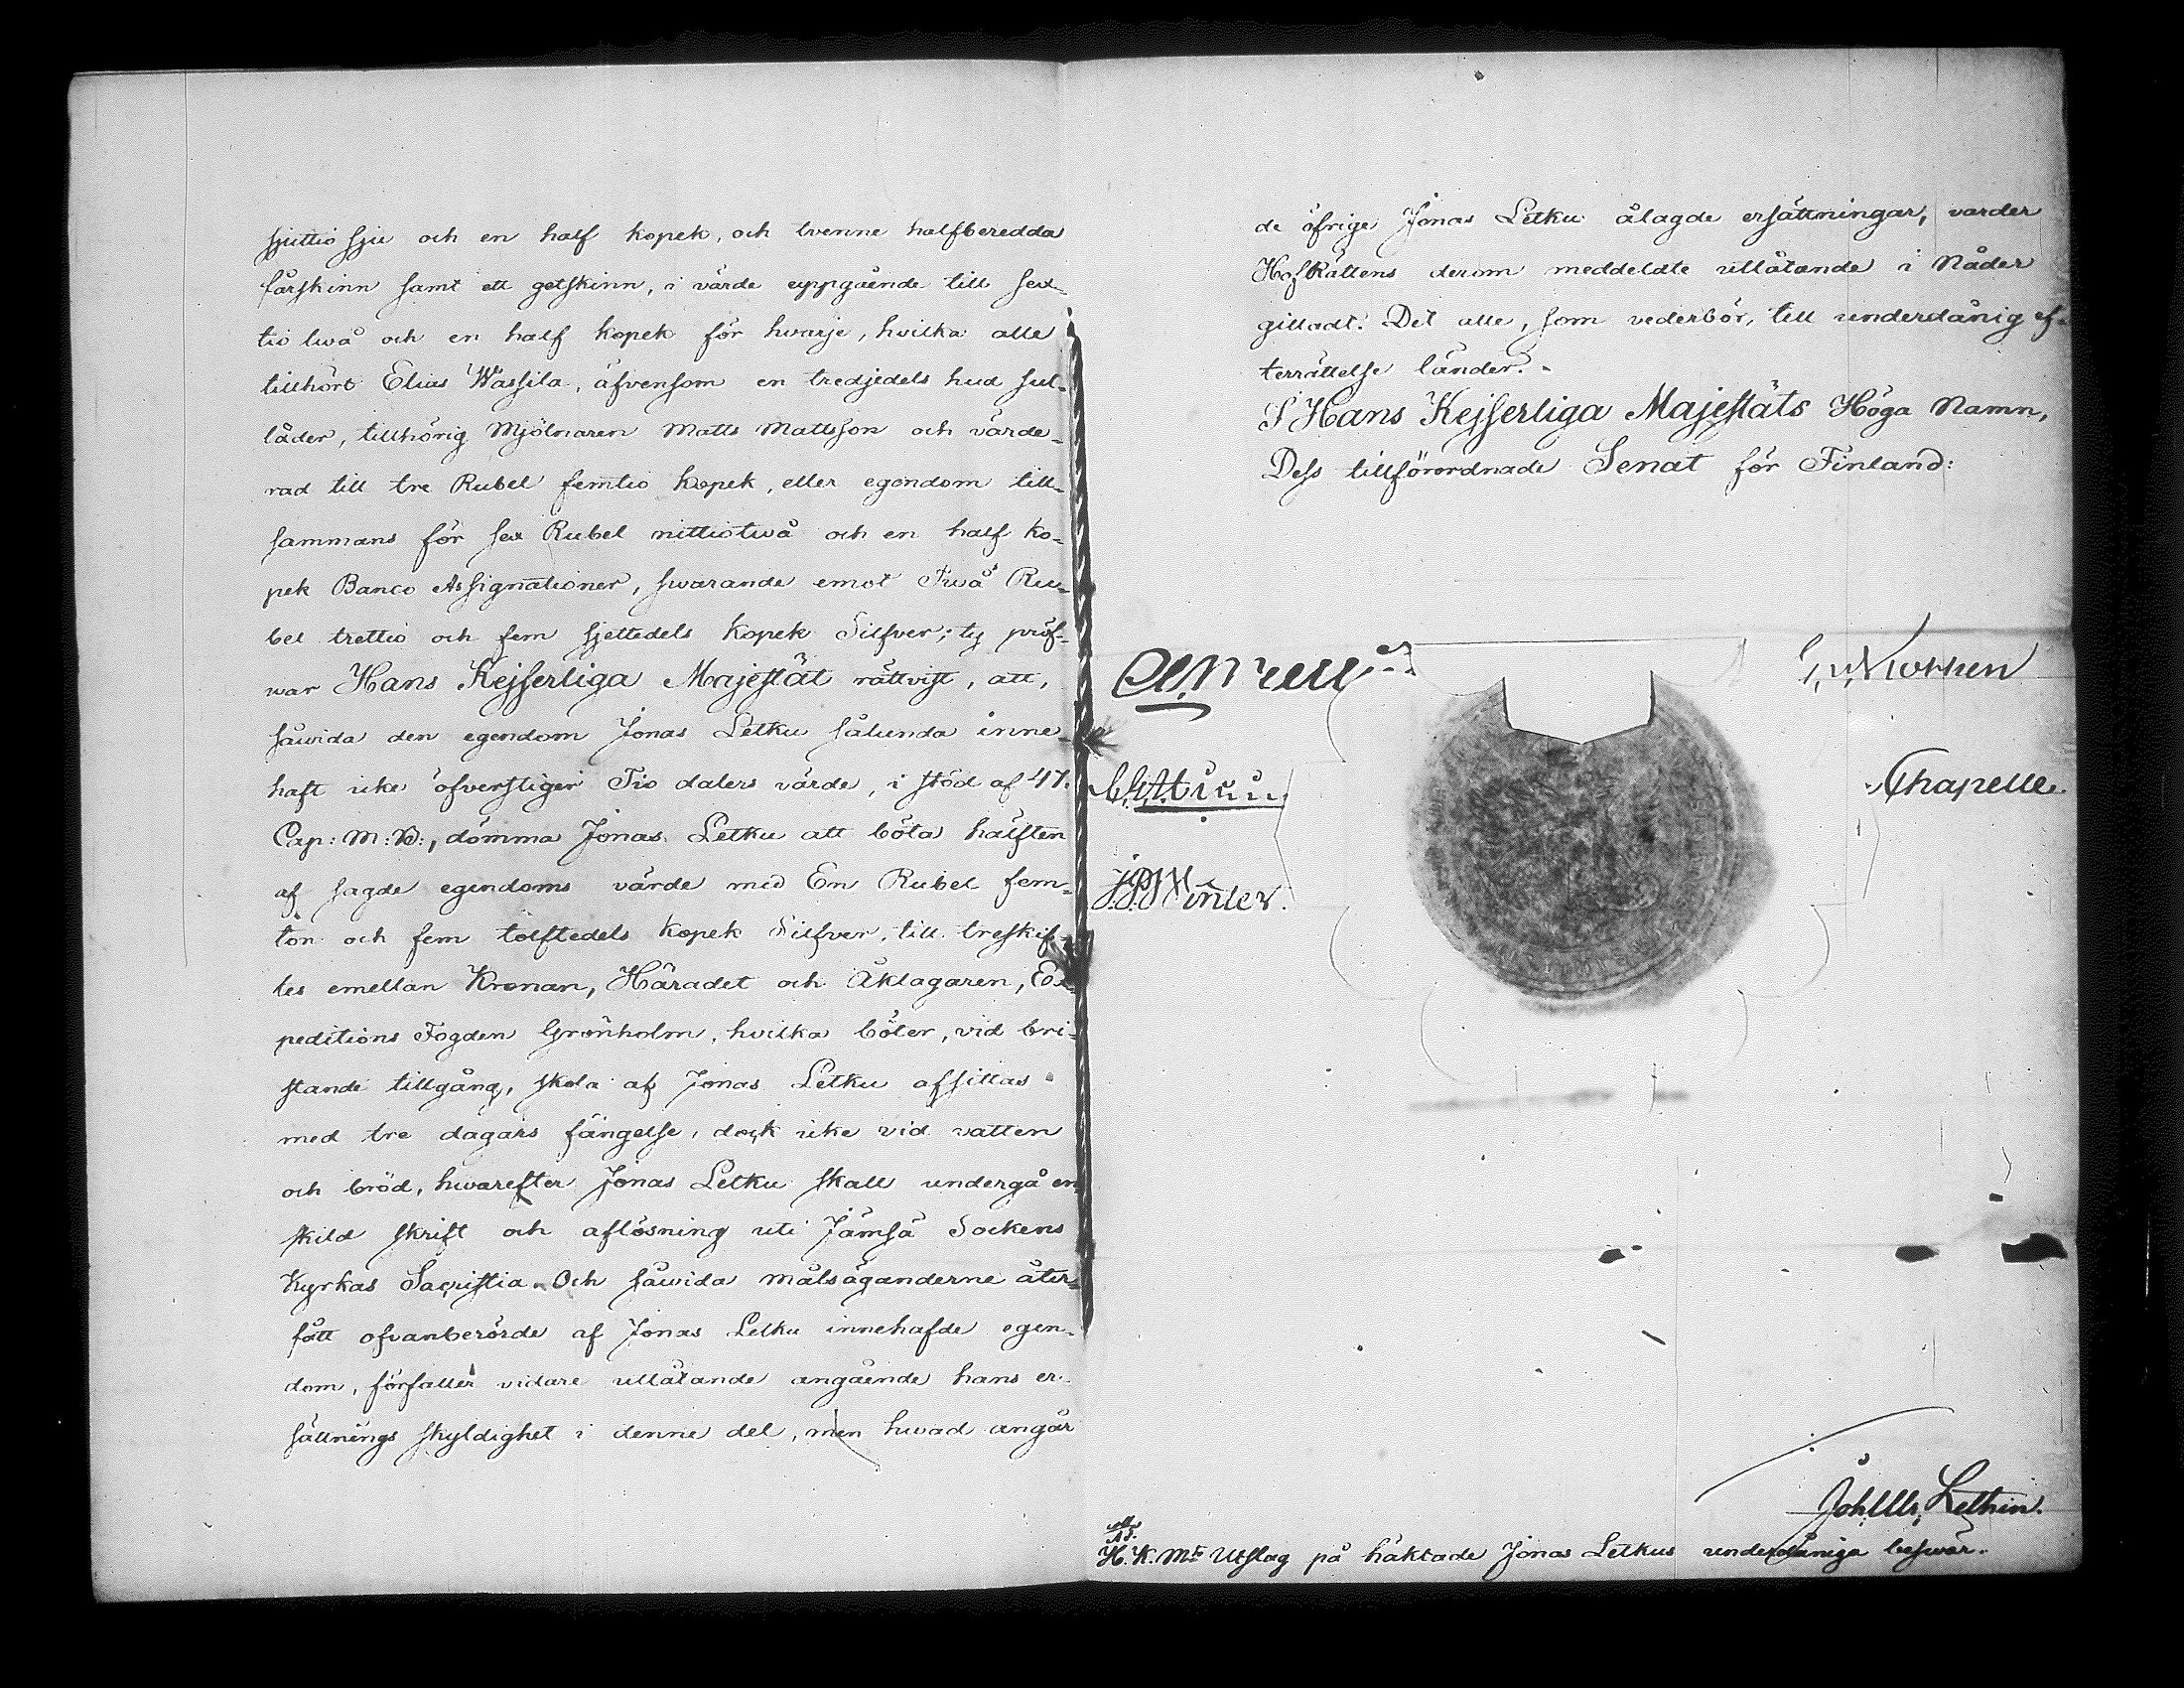 sjuttio sju och en half kopek, och tvenne halfberedda
fårskinn samt ett getskinn, i värde uppgående till sex-
tio twå och en half kopek för hwarje, hvilka alle
tillhört Elias Wassila, äfvensom en tredjedels hud sul-
läder, tillhörig Mjölnaren Matts Mattsson och värde-
rad till tre Rubel femtio kopek, eller egendom till-
sammans för sex Rubel nittiotwå och en half ko-
pek Banco Assignationer, swarande emot Twå Ru-
bel trettio och fem sjettedels kopek Silfver; ty pröf-
war Hans Kejserliga Majestät rättvist, att,
såwida den egendom Jonas Letku sålunda inne-
haft icke öfverstiger Tio dalers värde, i stöd af 47.
Cap: M:B:, dömma Jonas Letku att böta hälften
af sagde egendoms värde med En Rubel fem-
ton och fem tolftedels kopek Silfver, till treskif-
tes emellan Kronan, Häradet och Åklagaren, Ex-
peditions Fogden Grönholm, hvilka böter, vid bri-
stande tillgång, skola af Jonas Letku afsittas
med tre dagars fängelse, dock icke vid vatten
och bröd, hwarefter Jonas Letku skall undergå en-
skild skrift och aflösning uti Jämsä Sockens
Kyrkas Sacristia. Och såwida målsäganderne åter-
fått ofvanberörde af Jonas Letku innehafde egen-
dom, förfaller vidare utlåtande angående hans er-
sättnings skyldighet i denne del, men hwad angår
de öfrige Jonas Letku ålagde ersättningar, varder
HofRättens derom meddeldte utlåtande i Nåder
gilladt. Det alle, som vederbör, till underdånig ef-
terrättelse länder.
I Hans Kejserliga Majestäts Höga Namn,
Dess tillförordnade Senat för Finland:
Chapelle.
J.P. Winter.
Joh. Ulr. Lethin.
H.K.Mts Utslag på häktade Jonas Letkus underdåniga beswär.